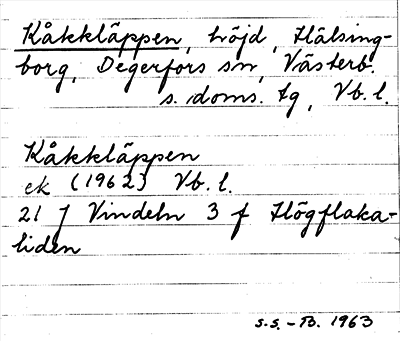 Kåkkläppen, höjd, Hälsing-
borg, Degerfors sn, Västerb.
s. doms. tg, Vb. l.
Kåkkläppen
ek (1962) Vb. l.
21 J Vindeln 3 f Högflaka-
liden
s.s. - B. 1963